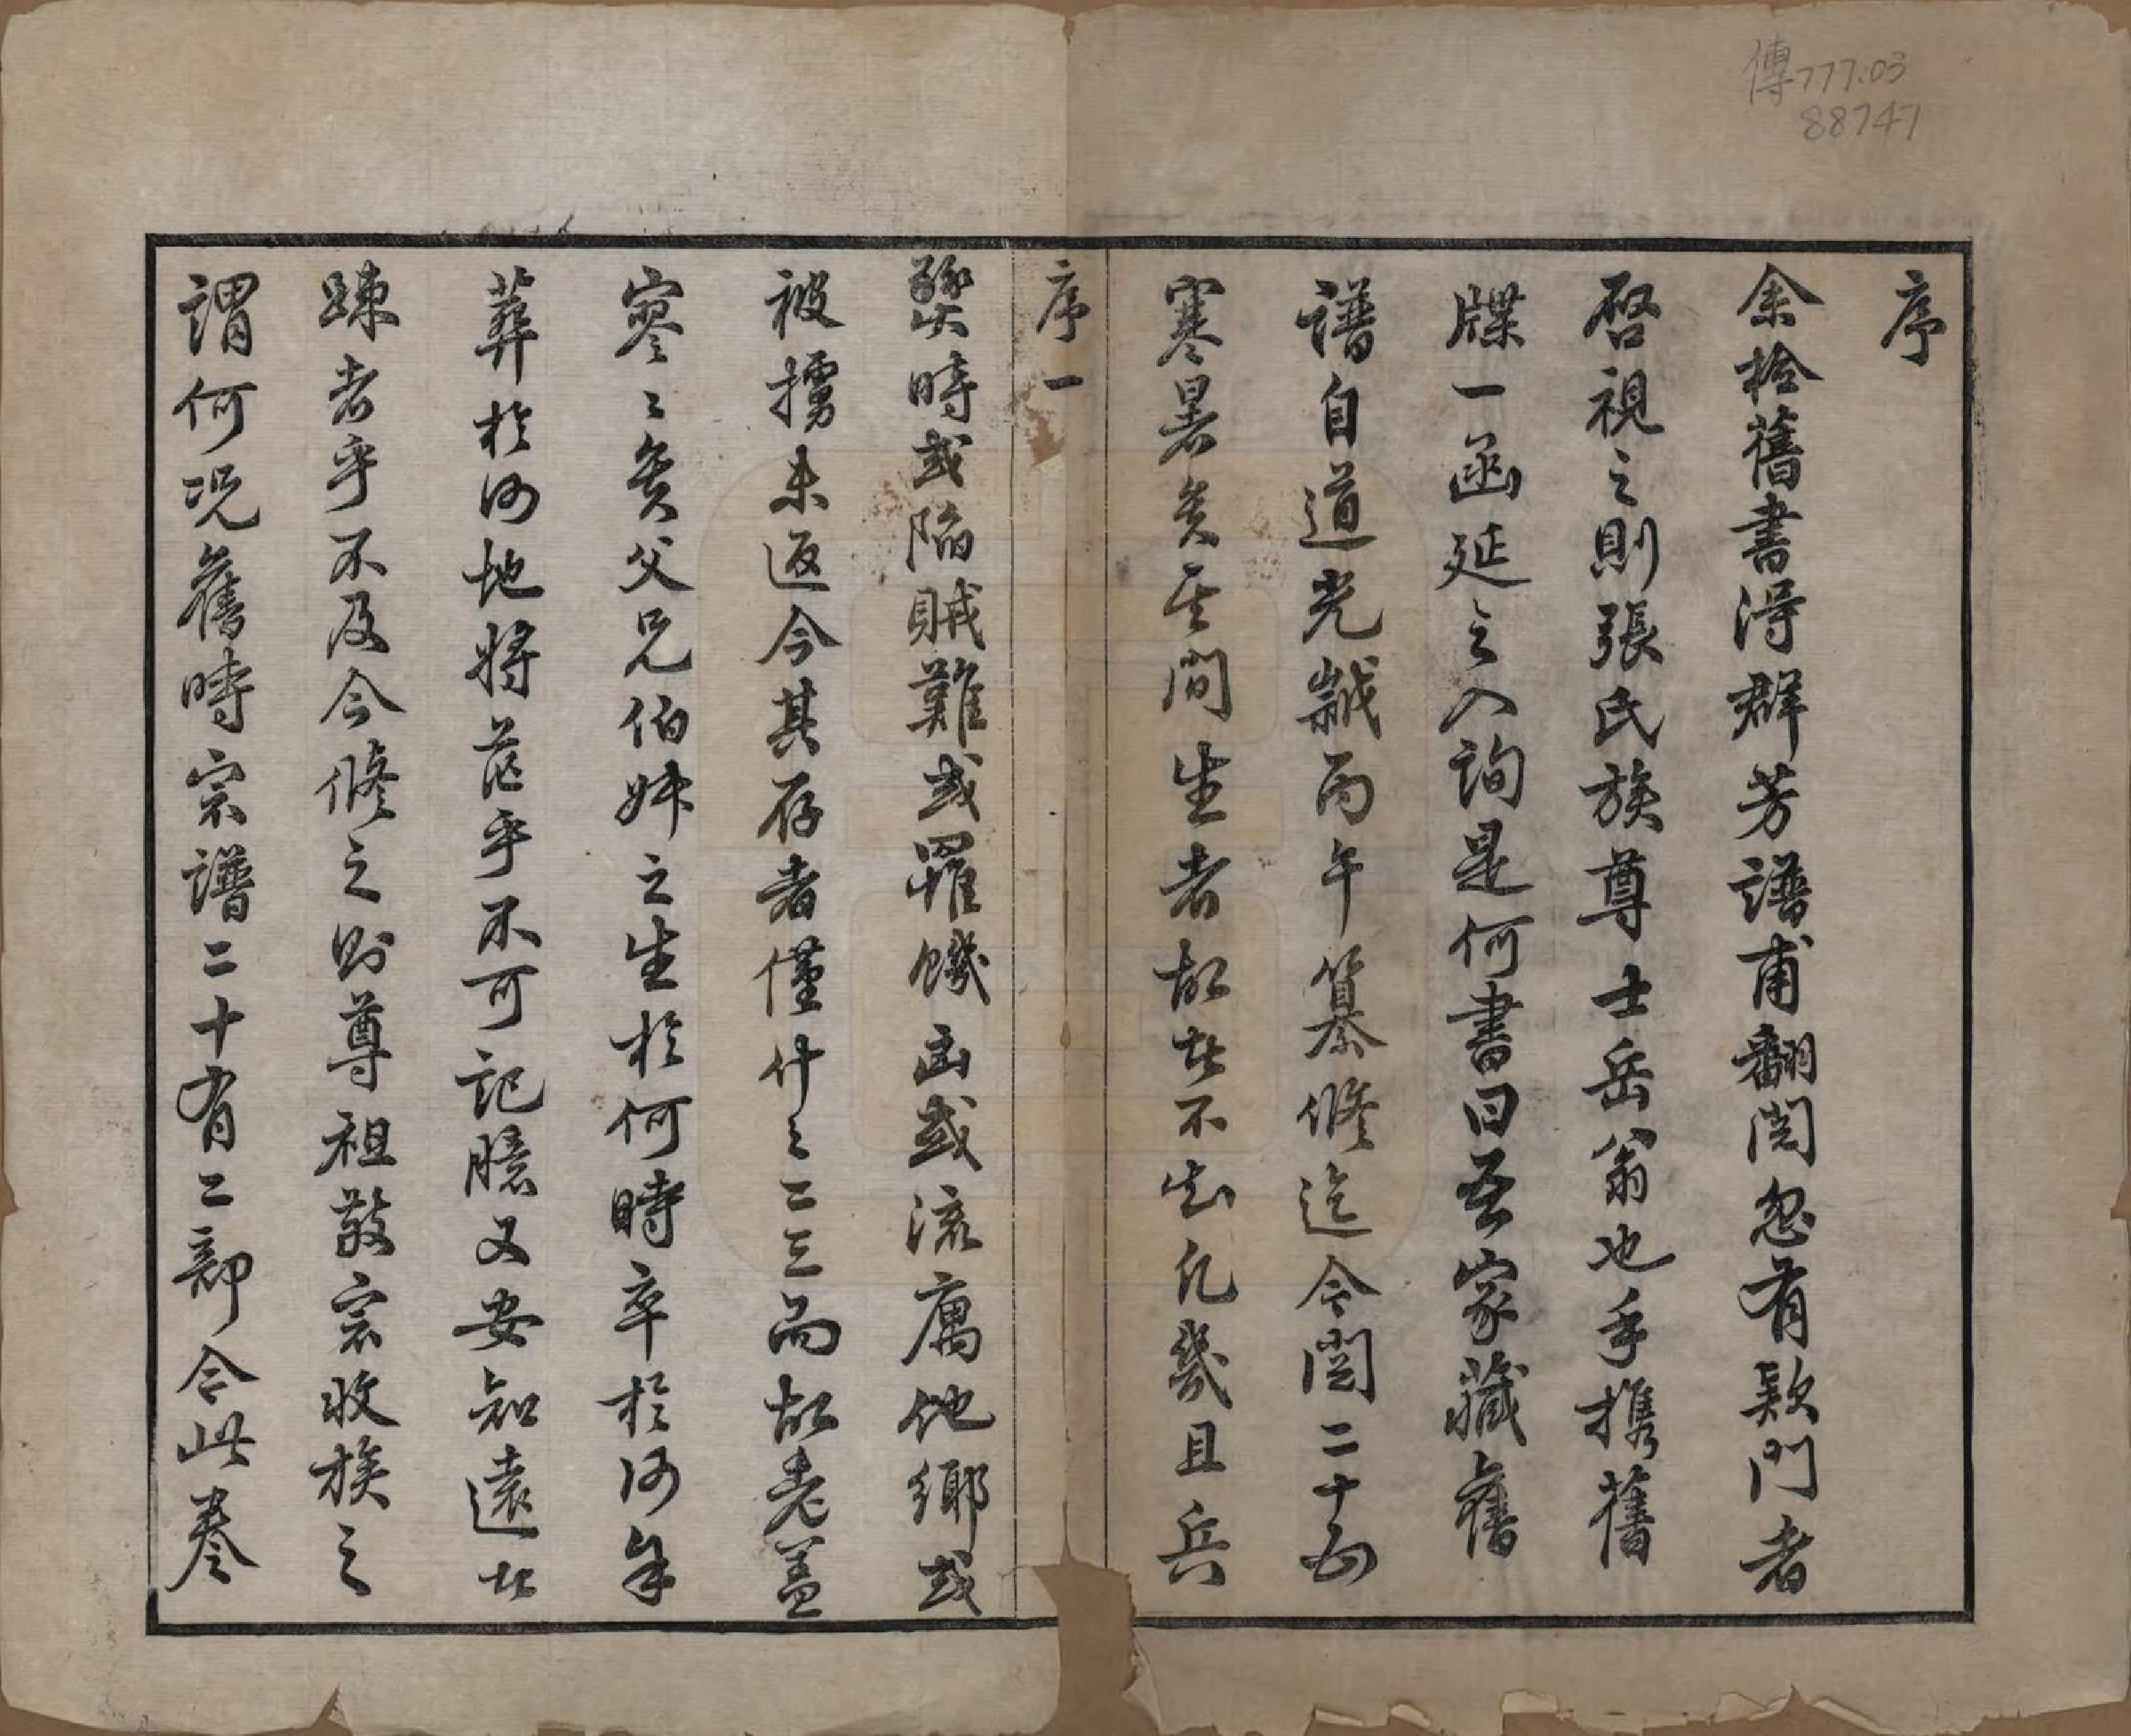 傳777.03
88747
序
余撿舊書得群芳譜甫翻閱忽有欵門者
啓視之則張氏族尊士岳翁也手携舊
牒一函延之入詢是何書曰吾家藏舊
譜自道光誠丙午纂修迄今閱二十五
寒暑矣其間生者故者不知凡幾且兵
序一
燹時或陷賊難或罹饑凶或流寓他鄉或
被擄未返今其存者僅什之二三而故老蓋
寥寥矣父兄伯姊之生於何時卒於何年
葬於何地將茫乎不可記臆又安知遠者
踈者乎不及今修之則尊祖敬宗收族之
謂何况舊時宗譜二十有二部令此卷